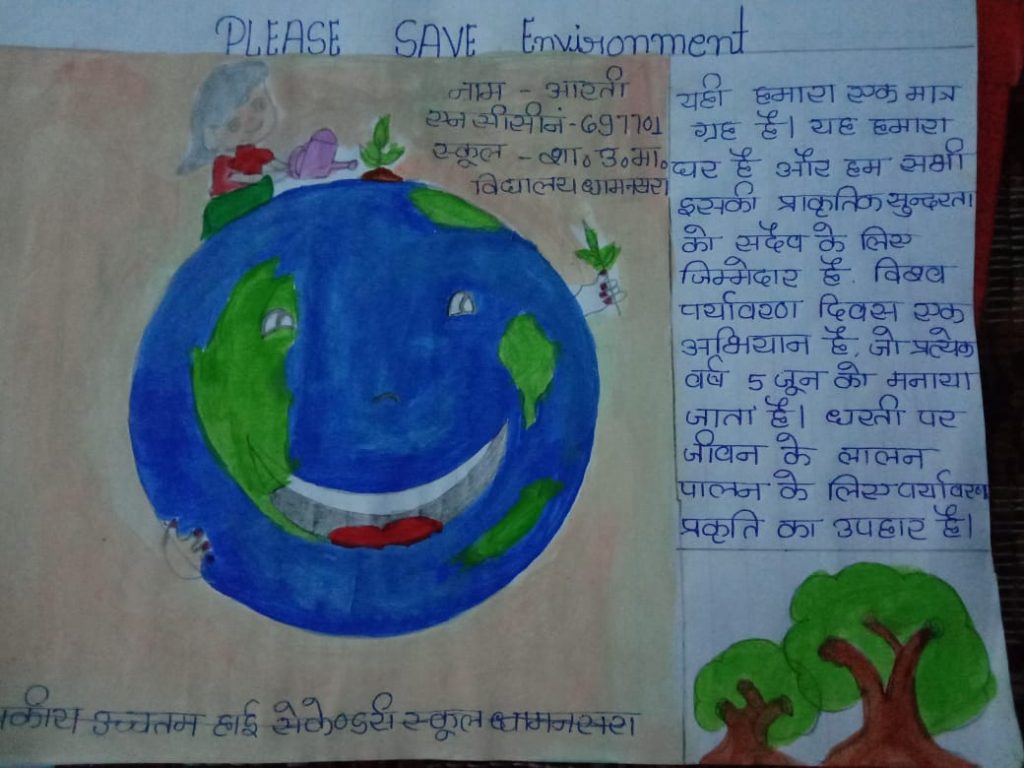 PLEASE SAVE Environment
नाम - आरती
एन सीसीनं-697701
स्कूल - शा॰ उ॰ मा॰
विद्यालय धामनसरा
यही हमारा एक मात्र
ग्रह है। यह हमारा
घर है और हम सभी
इसकी प्राकृतिक सुन्दरता
को सदैव के लिए
जिम्मेदार है. विश्व
पर्यावरण दिवस एक
अभियान है, जो प्रत्येक
वर्ष 5 जून को मनाया
जाता है। धरती पर
जीवन के लालन
पालन के लिए पर्यावरण
प्रकृति का उपहार है।
उच्चतम हाई सेकेण्डरी स्कूल धामनसरा